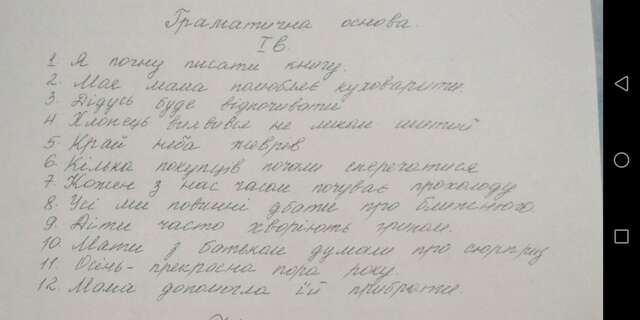 Граматична основа.
І в.
1. Я почну писати книгу.
2. Моя мама полюбляє куховарити.
3. Дідусь буде відпочивати
4 Хлопець виявився не ликом шитий
5. Край неба жеврев
6. Кілька покупців почали сперечатися
7. Кожен з нас часом почуває прохолоду
8. Усі ми повинні дбати про ближнього.
9. Діти часто хворіють грипом.
10. Мати з батьком думали про сюрприз
11. Осінь - прекрасна пора року.
12. Мама допомогла їй прибрати.